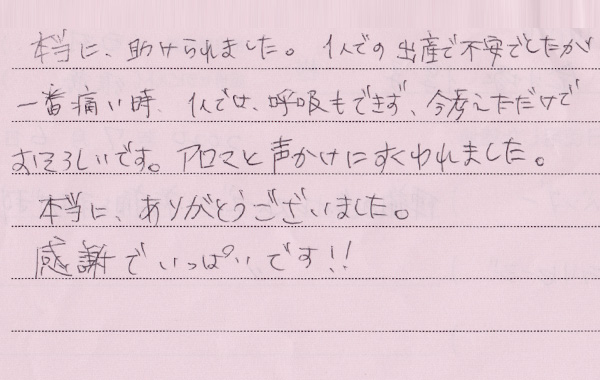 本当に、助けられました。1人での出産で不安でしたが
一番痛い時、1人では、呼吸もできず、今考えただけで
おそろしいです。アロマと声かけにすくわれました。
本当に、ありがとうございました。
感謝でいっぱいです!!